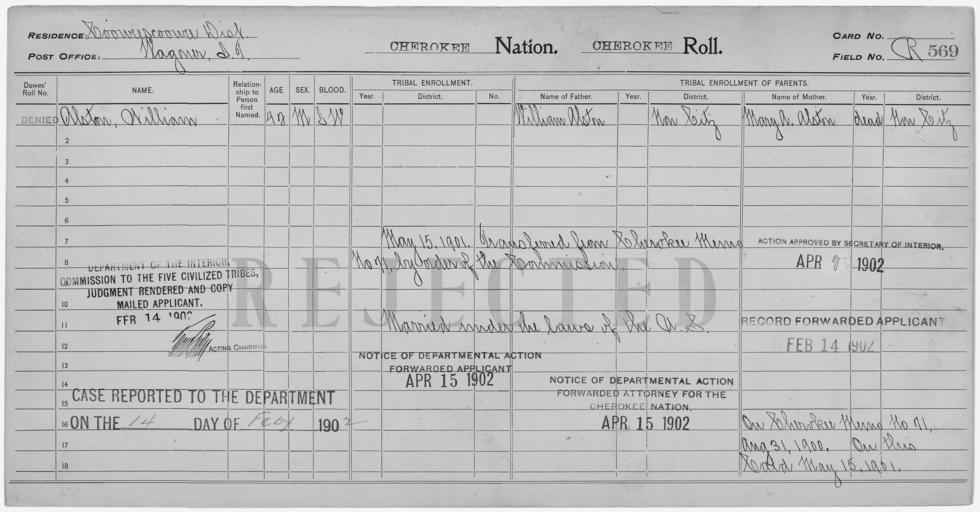 RESIDENCE: Cooweescoowee Dist.
POST OFFICE: Wagner, I.T.
CHEROKEE Nation. CHEROKEE Roll.
CARD NO.
FIELD NO. R 569
Dawes' Roll No. NAME. Relationship to Person first Named. AGE SEX. BLOOD. TRIBAL ENROLLMENT. TRIBAL ENROLLMENT OF PARENTS.
Year. District. No. Name of Father. Year. District. Name of Mother. Year. District.
DENIED Alston, William 48 M I W William Alston Non Citz Mary A. Alston dead Non Citz
2
3
4
5
6
7 May 15, 1901. Transferred from Cherokee Memo
8 No 91, by order of the Commission.
ACTION APPROVED BY SECRETARY OF INTERIOR.
APR 1902
DEPARTMENT OF THE INTERIOR,
COMMISSION TO THE FIVE CIVILIZED TRIBES,
JUDGMENT RENDERED AND COPY
MAILED APPLICANT.
FEB 14 1902
ACTING CHAIRMAN.
REJECTED
10
11 Married under the laws of the U.S.
12
RECORD FORWARDED APPLICANT
FEB 14 1902
13
NOTICE OF DEPARTMENTAL ACTION
FORWARDED APPLICANT
APR 15 1902
14
NOTICE OF DEPARTMENTAL ACTION
FORWARDED ATTORNEY FOR THE
CHEROKEE NATION.
APR 15 1902
15
CASE REPORTED TO THE DEPARTMENT
16
ON THE 14 DAY OF Feby 1902
On Cherokee Memo No 91,
17 Aug 31, 1900. On this
18 Card May 15, 1901.